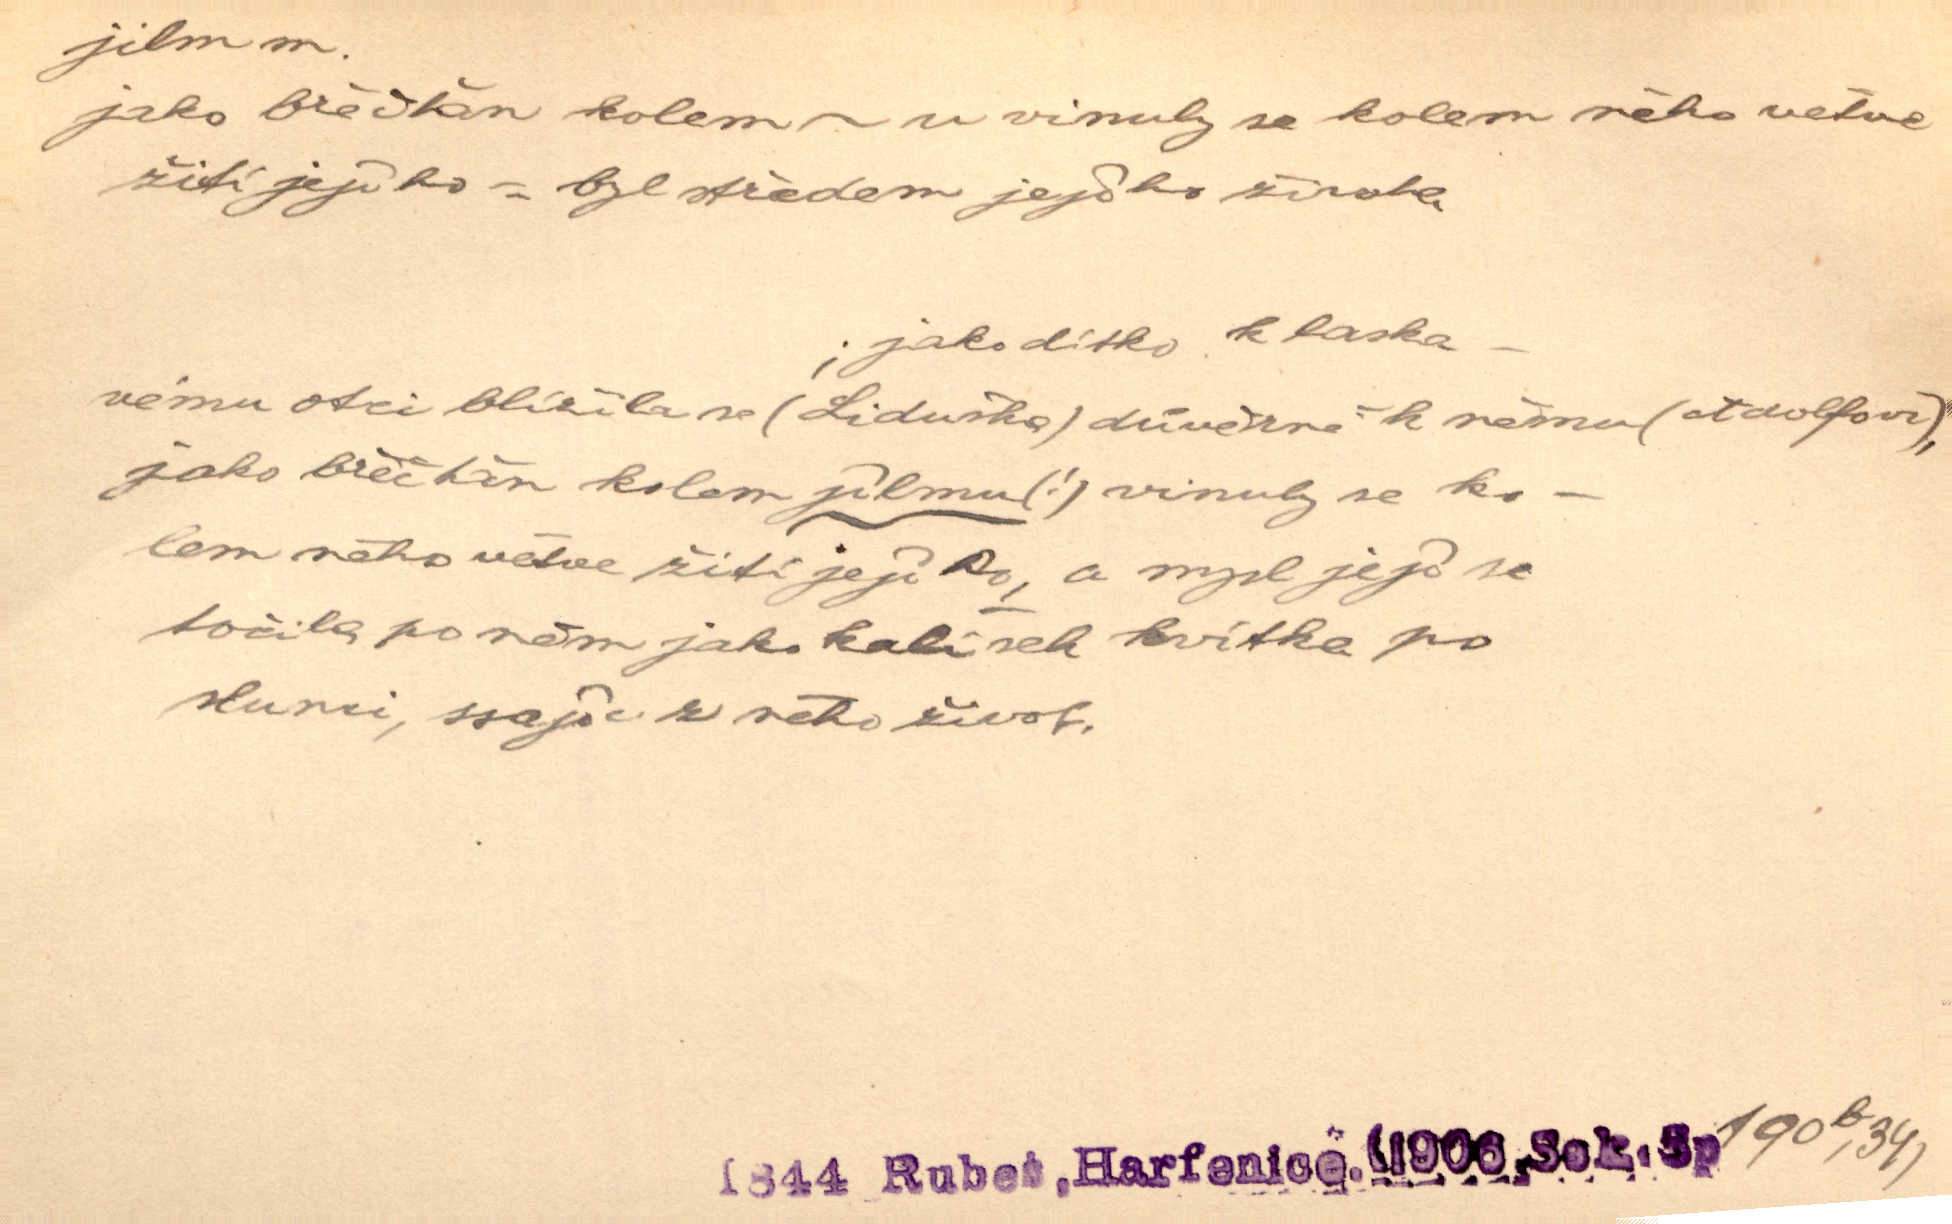 jilm m.
jako břečťan kolem ~u vinuly se kolem něho větve
žití jejího = byl středem jejího života
; jako dítko k laska-
vému otci blížila se (Liduška) důvěrně k němu (Adolfovi),
jako břečťan kolem jílmu(!) vinuly se ko-
lem něho větve žití jejího, a mysl její se
točila po něm jako kalíšek kvítka po
slunci, ssajíc z něho život.
1844 Rubeš, Harfenice. (1906, Sok. Sp 190 b, 34)